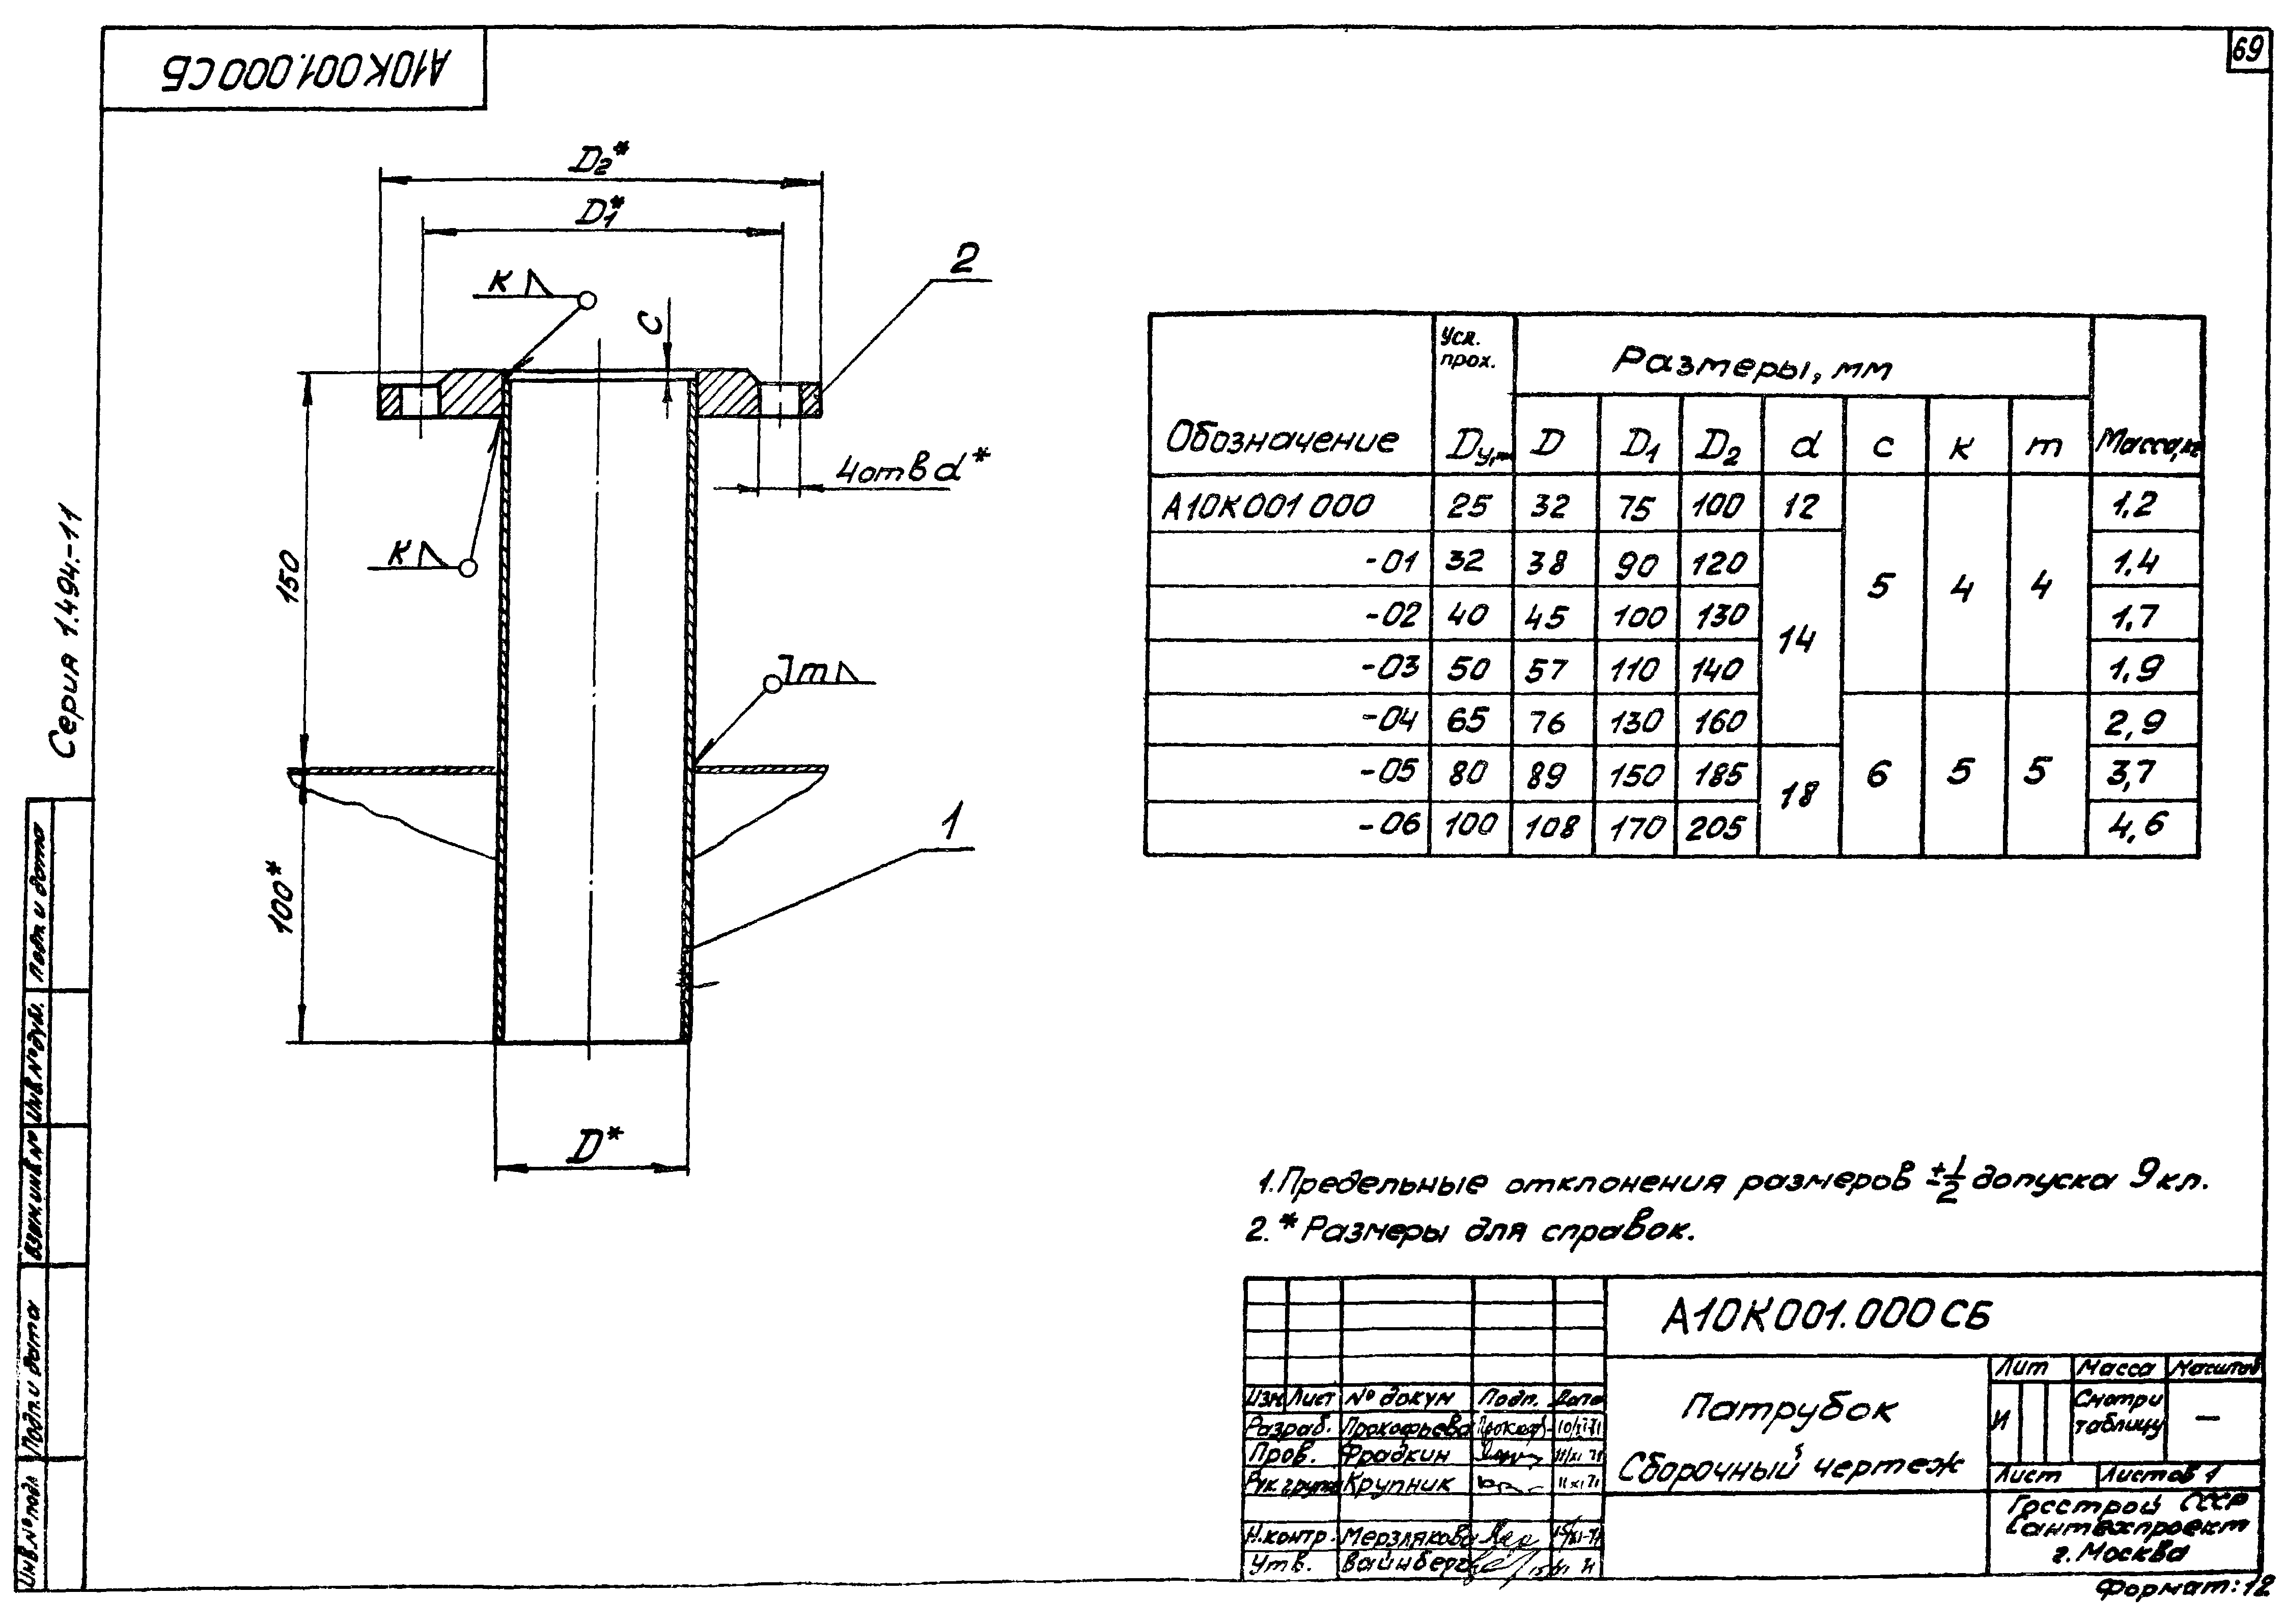 А10К001.000СБ
69
D2*
D1*
К
С
2
4 отв d*
150
К
m
100*
1
D*
Серия 1.494.-11
Подп. и дата
Инв.№ дубл.
Взам.инв.№
Подп. и дата
Инв.№ подл
Обозначение Усл. прох. Dу, Размеры, мм Масса, кг
D D1 D2 d с к m
А10К001 000 25 32 75 100 12 5 4 4 1,2
-01 32 38 90 120 14 1,4
-02 40 45 100 130 1,7
-03 50 57 110 140 1,9
-04 65 76 130 160 6 5 5 2,9
-05 80 89 150 185 18 3,7
-06 100 108 170 205 4,6
1. Предельные отклонения размеров ±1/2 допуска 9 кл.
2. * Размеры для справок.
А10К001.000СБ
Изм Лист № докум Подп. Дата
Разраб. Прокофьева
Пров. Фрадкин
Рук. групп Крупник
Н.контр. Мерзлякова
Утв. Вайнберг
Патрубок
Сборочный чертеж
Лит Масса Масштаб
И Смотри таблицу —
Лист Листов 1
Госстрой СССР
Сантехпроект
г. Москва
Формат: 12